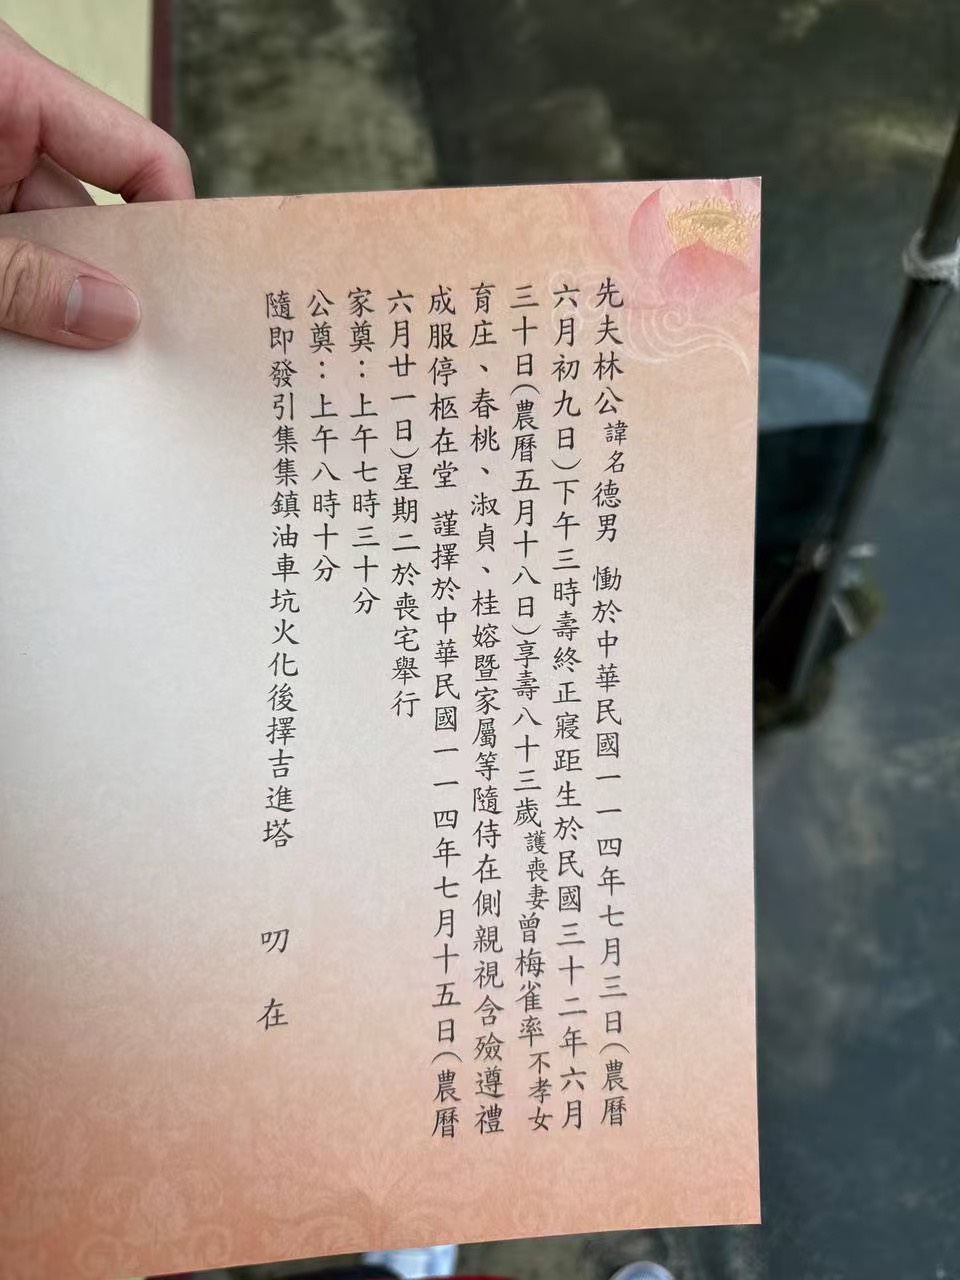 先夫林公諱名德男　慟於中華民國一一四年七月三日(農曆
六月初九日)下午三時壽終正寢距生於民國三十二年六月
三十日(農曆五月十八日)享壽八十三歲護喪妻曾梅雀率不孝女
育庄、春桃、淑貞、桂嫆暨家屬等隨侍在側親視含殮遵禮
成服停柩在堂　謹擇於中華民國一一四年七月十五日(農曆
六月廿一日)星期二於喪宅舉行
家奠：上午七時三十分
公奠：上午八時十分
隨即發引集集鎮油車坑火化後擇吉進塔　叨　在